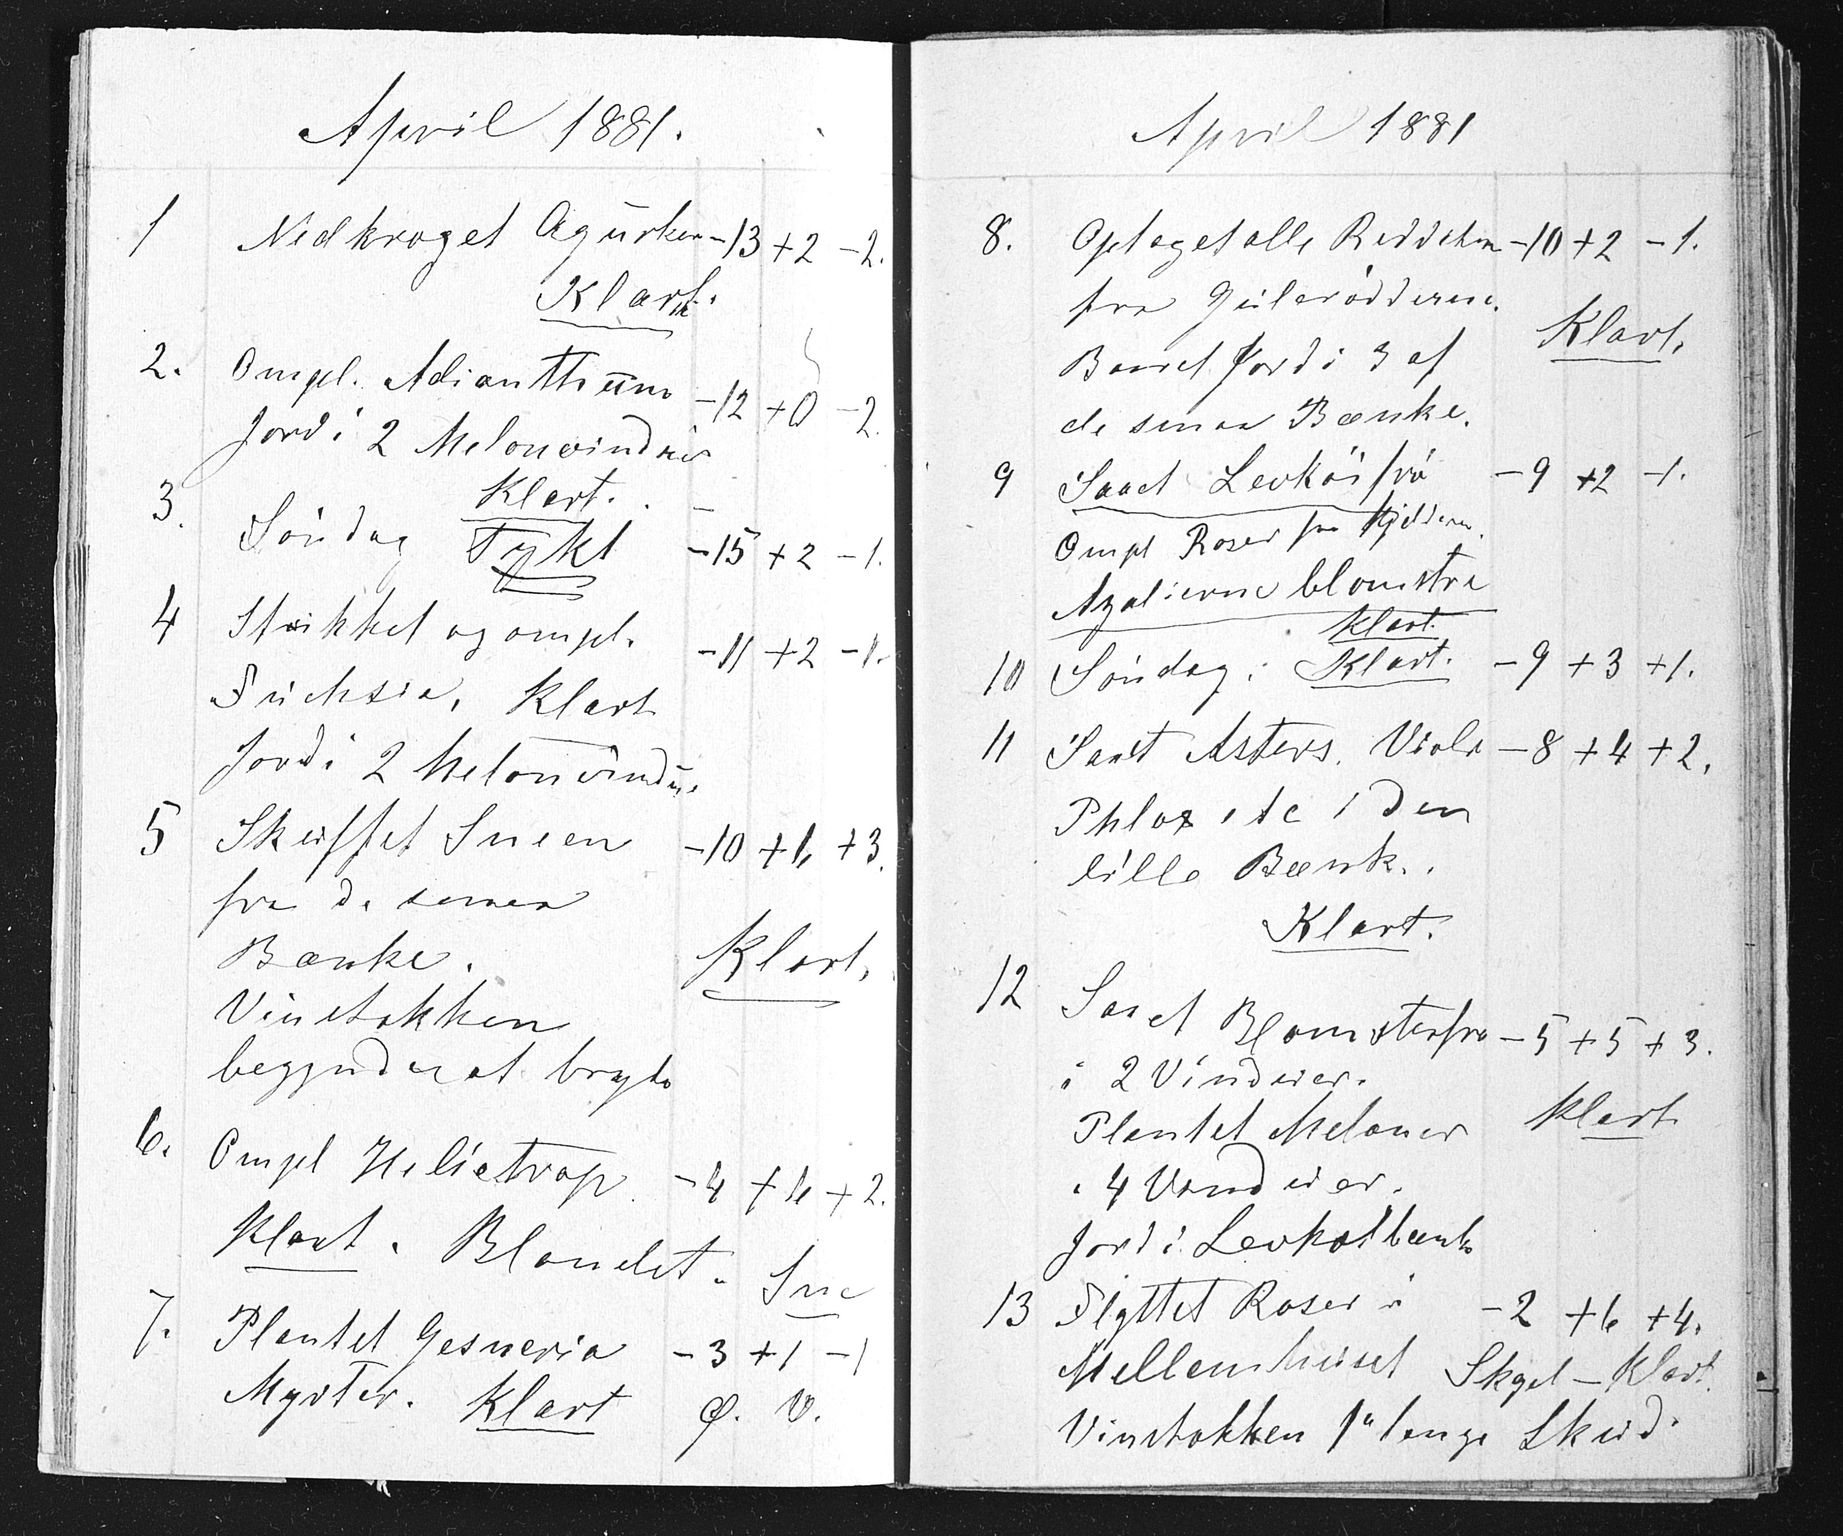 April 1881.
1 Nedkroget Agurker -13 +2 -2.
Klart.
2. Ompl. Adianthum -12 +0 -2.
Jord i 2 Melonvinduer
Klart.
3. Söndag Tykt -15 +2 -1.
4 Stikket og ompl. -11 +2 -1.
Fuchsia, Klart
Jord i 2 Melonvindu.
5 Skuffet Sneen -10 +6 +3.
fra de smaa
Bænke. Klart.
Vinstokken
begynder at bryde
6. Ompl Heliotrop -4 +6 +2.
Klart. Blandet. Sne
7. Plantet Gesneria -3 +1 -1
Myrter. Klart Ø. V.
April 1881
8. Optaget alle Reddiker -10 +2 -1.
fra Gulerödderne.
Klart.
Baaret Jord i 3 af
de smaa Bænke.
9 Saaet Levköifrö -9 +2 -1.
Ompl Roser fra Kjelderen.
Azalierne blomstre
Klart.
10 Söndag. Klart. -9 +3 +1.
11 Saaet Asters. Viola -8 +4 +2.
Phlox etc i den
lille Bænk.
Klart.
12 Saaet Blomsterfrö -5 +5 +3.
i 2 Vinduer.
Plantet Meloner Klart
i 4 Vinduer.
Jord i Levkoibænk
13 Flyttet Roser i -2 +6 +4.
Mellemhuset Skyet - Klart.
Vinstokken 1" lange Skud.